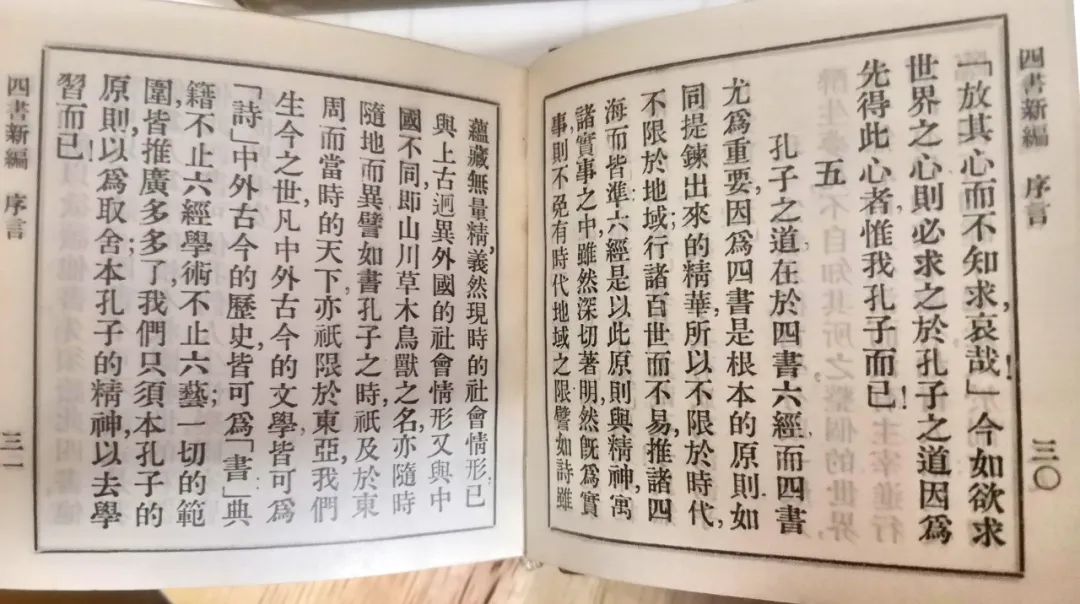 四書新編 序言
三〇
「放其心而不知求,哀哉!」今如欲求
世界之心,則必求之於孔子之道,因爲
先得此心者,惟我孔子而已!
五
孔子之道,在於四書六經,而四書
尤爲重要,因爲四書是根本的原則,如
同提鍊出來的精華,所以不限於時代,
不限於地域,行諸百世而不易,推諸四
海而皆準;六經是以此原則與精神,寓
諸實事之中,雖然深切著明,然旣爲實
事,則不免有時代地域之限,譬如詩雖
蘊藏無量精義,然現時的社會情形,已
與上古迥異,外國的社會情形,又與中
國不同,即山川草木鳥獸之名,亦隨時
隨地而異,譬如書,孔子之時,祇及於東
周,而當時的天下,亦祇限於東亞,我們
生今之世,凡中外古今的文學,皆可爲
「詩」,中外古今的歷史,皆可爲「書」,典
籍不止六經,學術不止六藝,一切的範
圍,皆推廣多多了,我們只須本孔子的
原則,以爲取舍;本孔子的精神,以去學
習而已!
四書新編 序言
三一